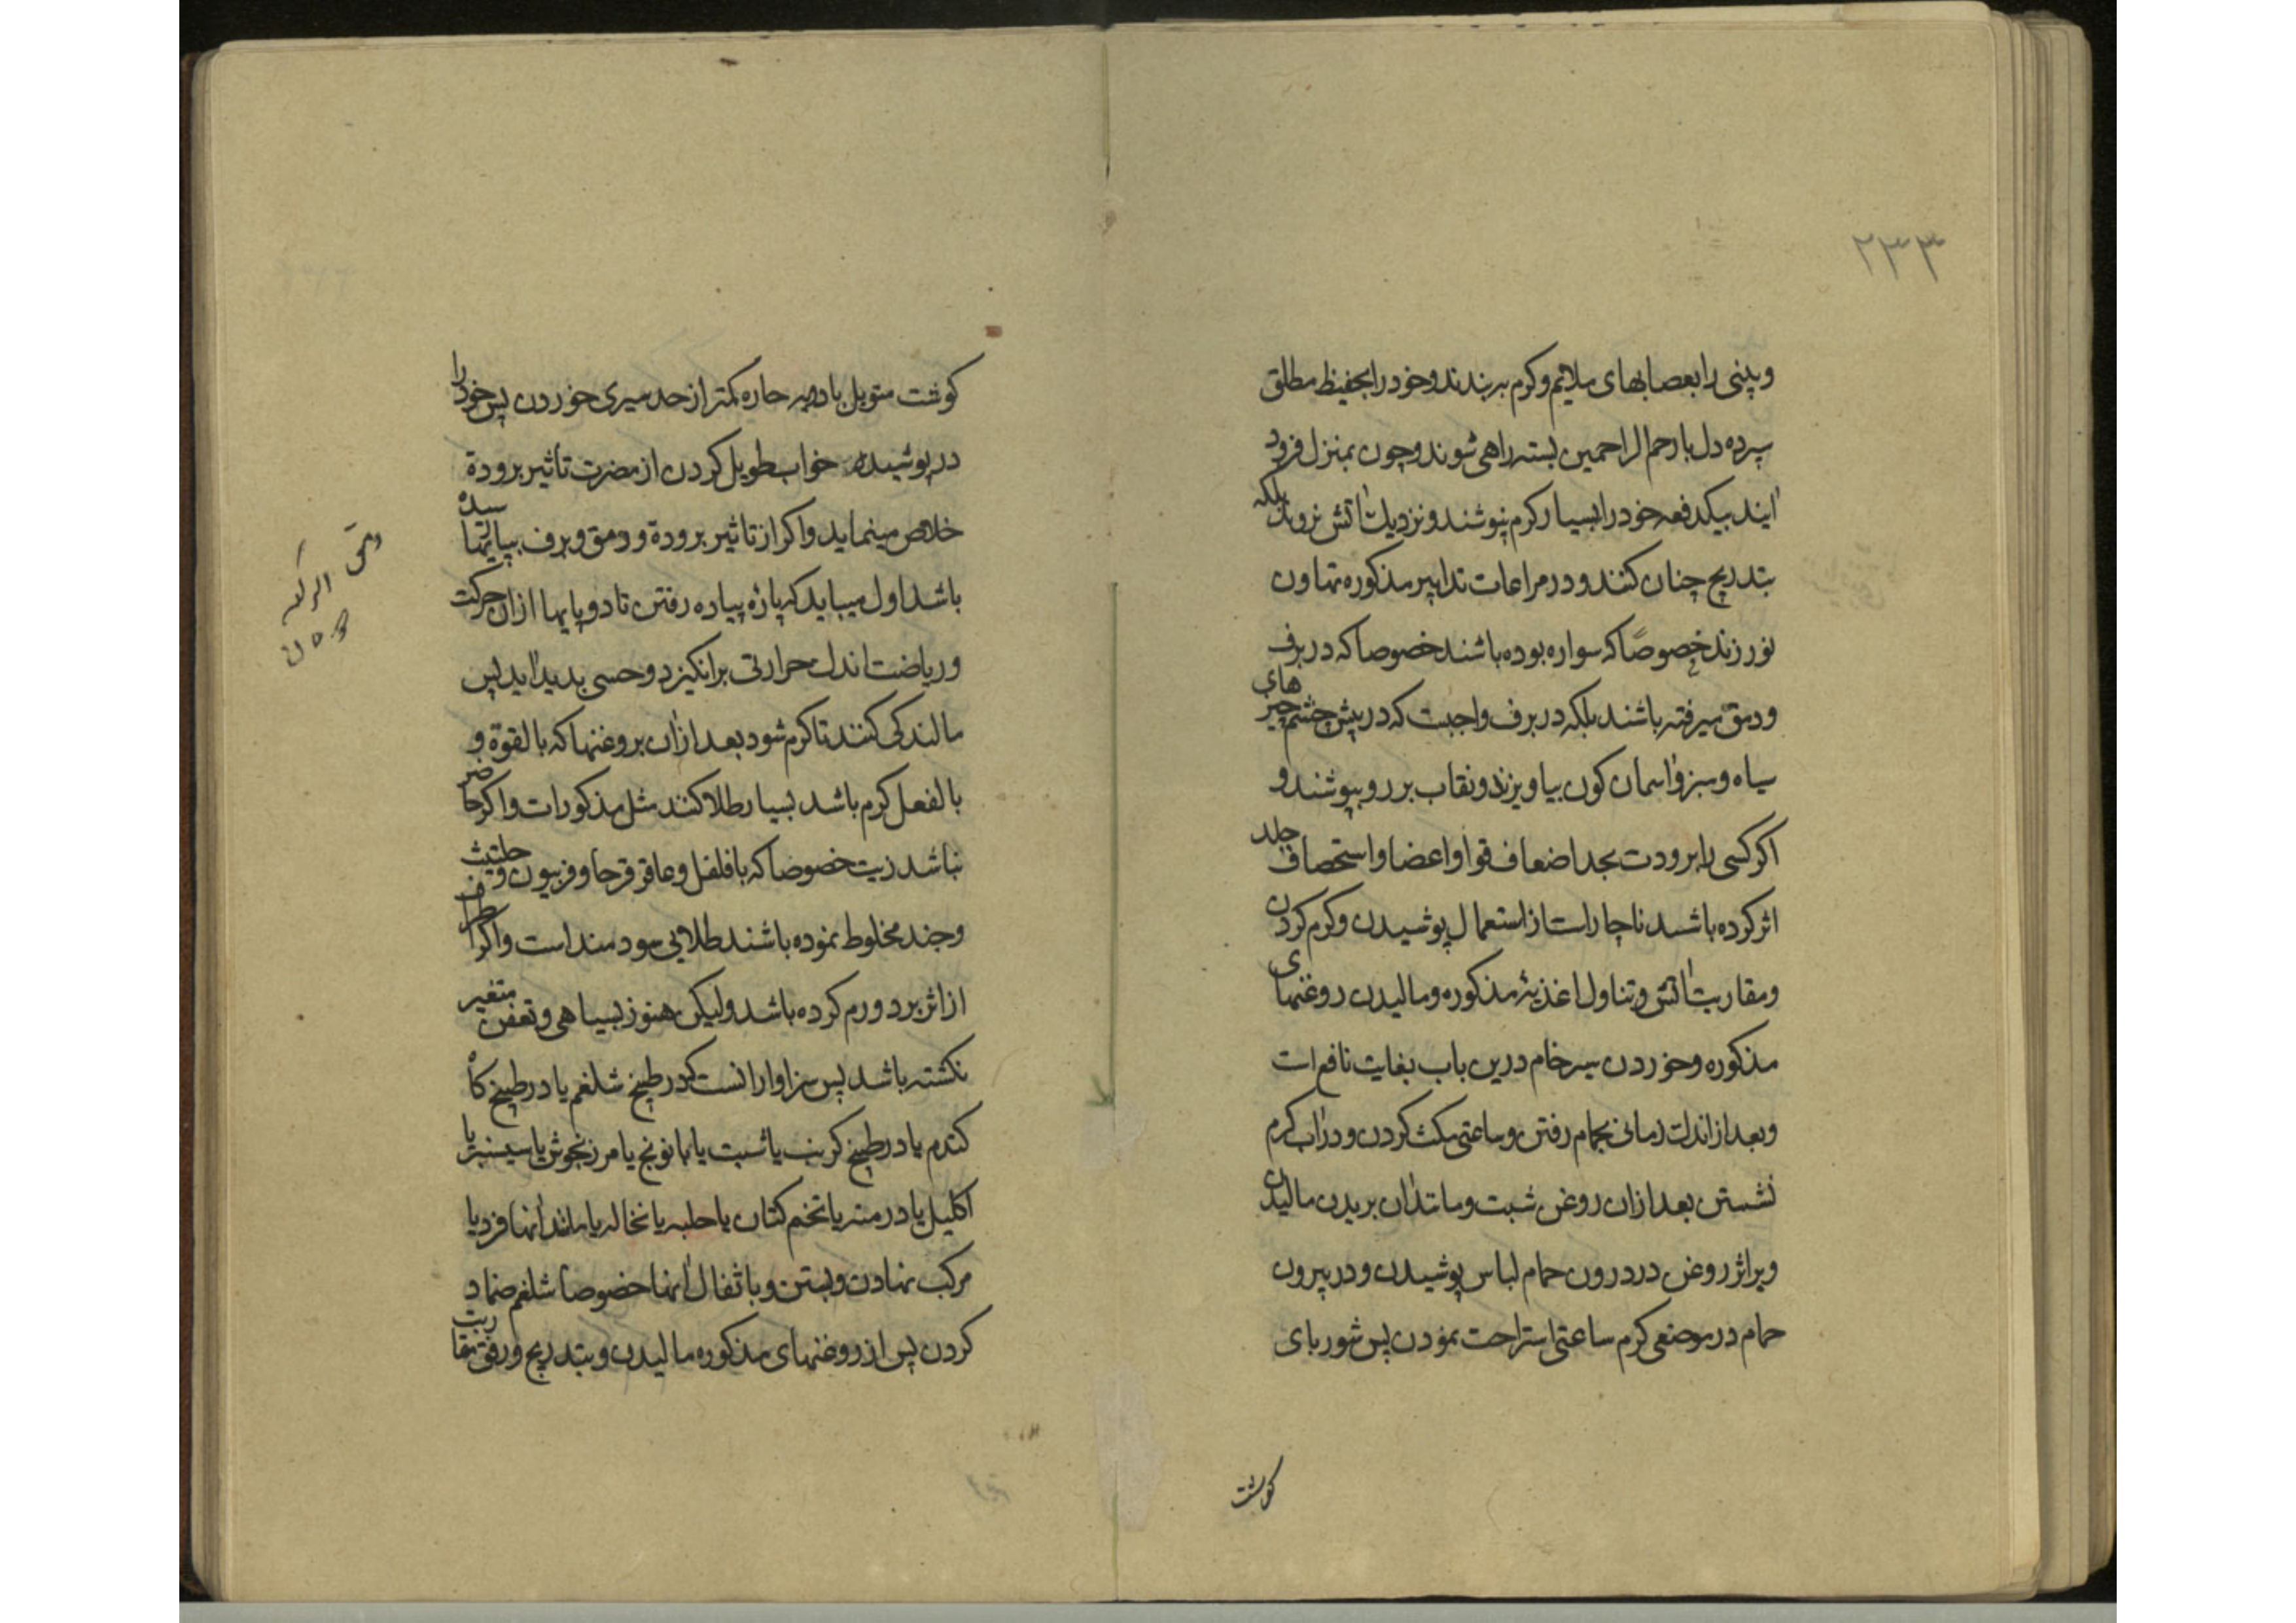 ۲۳۳
وبینی را بعصابهای ملایم وکرم بربندند وخود را بحفیظ مطلق
سپرده دل بارحم الراحمین بسته راهی شوند وچون بمنزل فرود
آیند بیکدفعه خود را بسیار کرم نپوشند ونزدیك آتش نروند بلکه
بتدریج چنان کنند ودر مراعات تدابیر مذکوره تهاون
نورزند خصوصًا که سواره بوده باشند خصوصا که در برف
ودمق میرفته باشند بلکه در برف واجبت که در پیش چشم چیزهای
سیاه وسبز وآسمان کون بیاویزند ونقاب بر رو بپوشند و
اکر کسی را برودت بحد اضعاف قوا واعضا واستحصاف جلد
اثر کرده باشد ناچار است از استعمال پوشیدن وکرم کردن
ومقاربت آتش وتناول اغذیۀ مذکوره ومالیدن روغنهای
مذکوره وخوردن سیر خام درین باب بغایت نافع است
وبعد از اندك زمانی بحمام رفتن وساعتی مکث کردن ودر آب کرم
نشستن بعد ازان روغن شبت ومانند آن بر بدن مالیدن
وبر اثر روغن در درون حمام لباس پوشیدن ودر بیرون
حمام در موضعی کرم ساعتی استراحت نمودن پس شوربای
کوشت
کوشت متوبل بادویه حاره کمتر از حد سیری خوردن پس خود را
در پوشیده خواب طویل کردن از مضرت تأثیر برودة
خلاص مینماید واکر از تاثیر برودة ودمق وبرف بپایها رسیده
باشد اول میباید که پارۀ پیاده رفتن تا دو پایها ازان حرکت
وریاضت اندك حرارتی برانکیزد وحسی بدید آید پس
مالندکی کنند تا کرم شود بعد ازان بروغنها که بالقوة و
بالفعل کرم باشد بسیار طلا کنند مثل مذکورات واکر حاضر
نباشد زیت خصوصا که با فلفل وعاقرقرحا وفربیون وحلتیث
وجند مخلوط نموده باشند طلایی سودمند است واکر اطراف
از اثر برد ورم کرده باشد ولیکن هنوز بسیاهی وتعفن متغیر
نکشته باشد پس سزاوار انست که در طبیخ شلغم یا در طبیخ کاه
کندم یا در طبیخ کرنب یا شبت یا بابونج یا مرزنجوش یا سیسنبر یا
اکلیل یا درمنه یا تخم کتان یا حلبه یا نخاله یا مانند آنها فرد یا
مرکب نهادن وبستن وبا ثفال آنها خصوصا شلغم ضماد
کردن پس از روغنهای مذکوره مالیدن وبتدریج ورفق بمقاربت